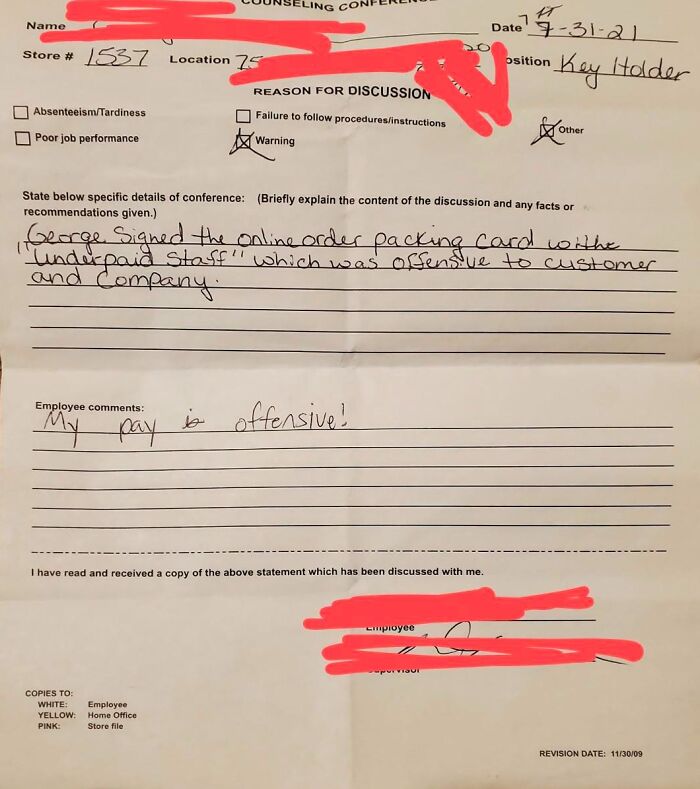 COUNSELING CONFERENCE
Name
Date 7-31-21
Store # 1537 Location 75 Position Key Holder
REASON FOR DISCUSSION
Absenteeism/Tardiness
Failure to follow procedures/instructions
Other
Poor job performance
Warning
State below specific details of conference: (Briefly explain the content of the discussion and any facts or
recommendations given.)
George signed the online order packing card withe
"Underpaid Staff" which was offensive to customer
and Company.
Employee comments:
My pay is offensive!
I have read and received a copy of the above statement which has been discussed with me.
Employee
Supervisor
COPIES TO:
WHITE: Employee
YELLOW: Home Office
PINK: Store file
REVISION DATE: 11/30/09